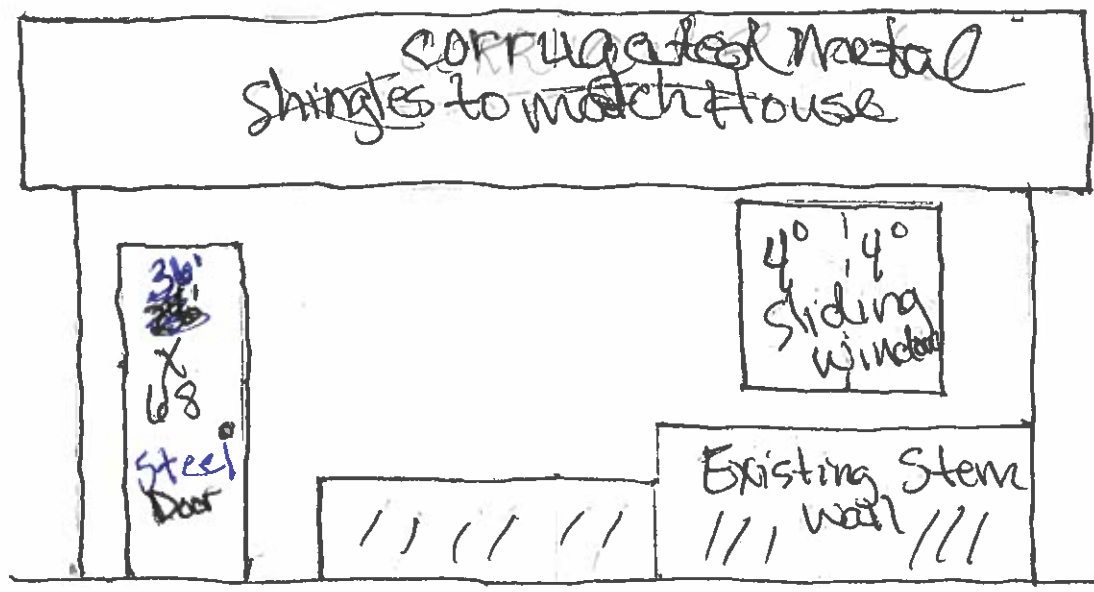 corrugated Metal
Shingles to match House
36"
X
68
Steel
Door
4⁰ 4⁰
Sliding
window
Existing Stem
wall